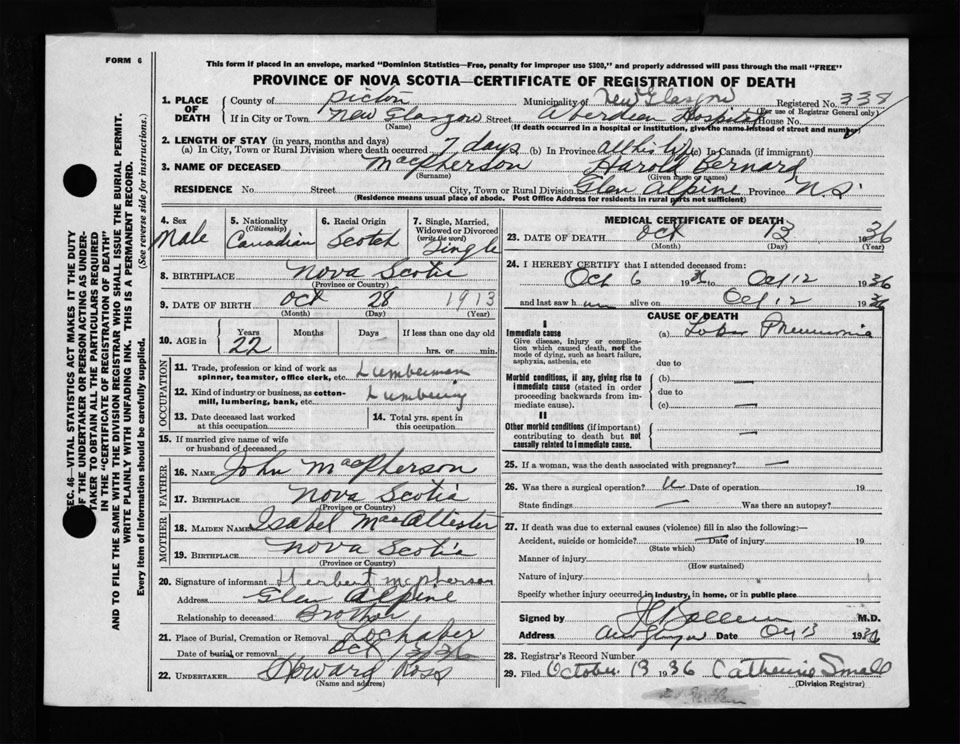 FORM 6
This form if placed in an envelope, marked "Dominion Statistics—Free, penalty for improper use $300," and properly addressed will pass through the mail "FREE"
PROVINCE OF NOVA SCOTIA—CERTIFICATE OF REGISTRATION OF DEATH
1. PLACE OF DEATH
County of Pictou Municipality of New Glasgow Registered No. 338
(For use of Registrar General only)
If in City or Town New Glasgow Street Aberdeen Hospital House No.
(Name) (If death occurred in a hospital or institution, give the name instead of street and number)
2. LENGTH OF STAY (in years, months and days)
(a) In City, Town or Rural Division where death occurred 7 days (b) In Province all his (c) In Canada (if immigrant)
3. NAME OF DECEASED MacPherson Harold Bernard
(Surname) (Given name or names)
RESIDENCE No. Street City, Town or Rural Division Glen Alpine Province N.S.
(Residence means usual place of abode. Post Office Address for residents in rural parts not sufficient)
4. Sex Male
5. Nationality (Citizenship) Canadian
6. Racial Origin Scotch
7. Single, Married, Widowed or Divorced (write the word) Single
8. BIRTHPLACE Nova Scotia
(Province or Country)
9. DATE OF BIRTH Oct 28 1913
(Month) (Day) (Year)
10. AGE in Years 22 Months Days If less than one day old hrs. or min.
OCCUPATION
11. Trade, profession or kind of work as spinner, teamster, office clerk, etc. Lumberman
12. Kind of industry or business, as cotton-mill, lumbering, bank, etc. Lumbering
13. Date deceased last worked at this occupation
14. Total yrs. spent in this occupation
15. If married give name of wife or husband of deceased
FATHER
16. NAME John MacPherson
17. BIRTHPLACE Nova Scotia
(Province or Country)
MOTHER
18. MAIDEN NAME Isabel MacAllister
19. BIRTHPLACE Nova Scotia
(Province or Country)
20. Signature of informant Herbert McPherson
Address Glen Alpine
Relationship to deceased Brother
21. Place of Burial, Cremation or Removal Lochaber
Date of burial or removal Oct
22. UNDERTAKER Howard Ross
(Name and address)
MEDICAL CERTIFICATE OF DEATH
23. DATE OF DEATH Oct 13 1936
(Month) (Day) (Year)
24. I HEREBY CERTIFY that I attended deceased from:
Oct 6 19 to Oct 12 1936
and last saw h im alive on Oct 12 1936
CAUSE OF DEATH
I
Immediate cause
Give disease, injury or complication which caused death, not the mode of dying, such as heart failure, asphyxia, asthenia, etc
(a) Lobar Pneumonia
due to
Morbid conditions, if any, giving rise to immediate cause (stated in order proceeding backwards from immediate cause).
(b) —
due to
(c) —
II
Other morbid conditions (if important) contributing to death but not causally related to immediate cause.
—
25. If a woman, was the death associated with pregnancy? —
26. Was there a surgical operation? Date of operation — 19
State findings — Was there an autopsy?
27. If death was due to external causes (violence) fill in also the following:—
Accident, suicide or homicide? — Date of injury 19
(State which)
Manner of injury
(How sustained)
Nature of injury
Specify whether injury occurred in industry, in home, or in public place
Signed by M.D.
Address New Glasgow Date Oct 13 1936
28. Registrar's Record Number
29. Filed October 13 1936 Catherine Small
(Division Registrar)
SEC. 46—VITAL STATISTICS ACT MAKES IT THE DUTY
OF THE UNDERTAKER OR PERSON ACTING AS UNDERTAKER TO OBTAIN ALL THE PARTICULARS REQUIRED
IN THE "CERTIFICATE OF REGISTRATION OF DEATH"
AND TO FILE THE SAME WITH THE DIVISION REGISTRAR WHO SHALL ISSUE THE BURIAL PERMIT.
WRITE PLAINLY WITH UNFADING INK. THIS IS A PERMANENT RECORD.
Every item of information should be carefully supplied. (See reverse side for instructions.)